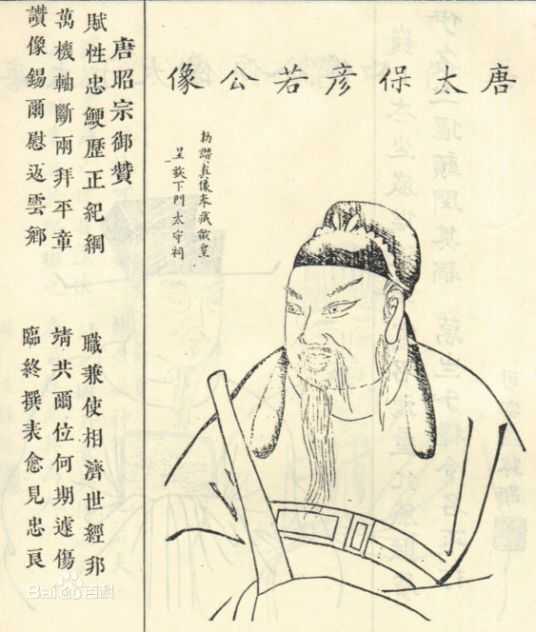 唐太保彥若公像
下門太守祠
唐昭宗御贊
賦性忠鯁歷正紀綱 職兼使相濟世經邦
萬機軸斷兩拜平章 靖共爾位何期遽傷
讚像錫爾慰返雲鄉 臨終撰表愈見忠良
Bai百科